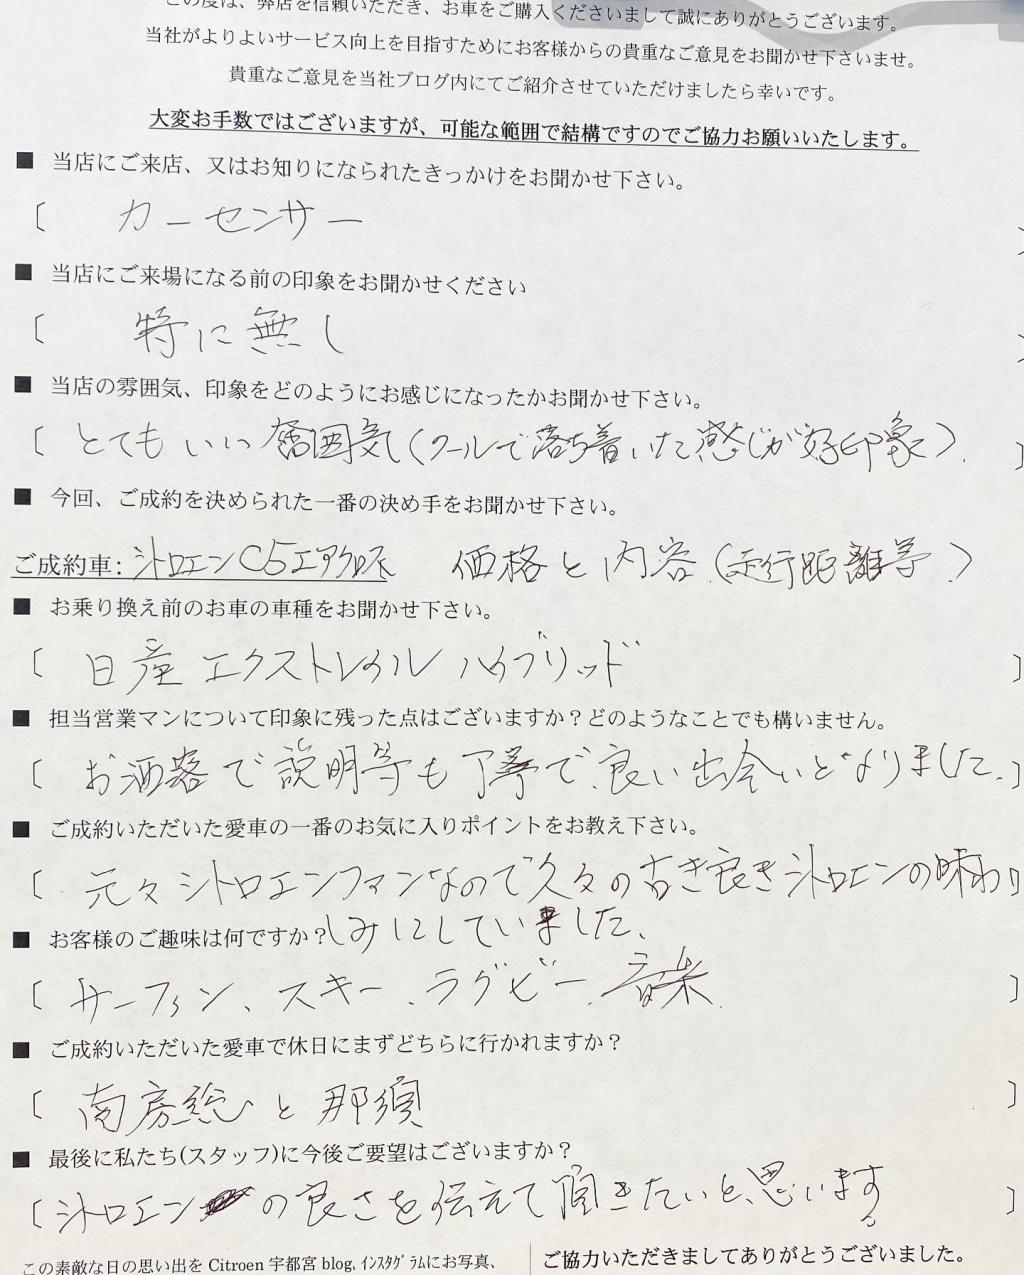 この度は、弊店を信頼いただき、お車をご購入くださいまして誠にありがとうございます。
当社がよりよいサービス向上を目指すためにお客様からの貴重なご意見をお聞かせ下さいませ。
貴重なご意見を当社ブログ内にてご紹介させていただけましたら幸いです。
大変お手数ではございますが、可能な範囲で結構ですのでご協力お願いいたします。
■ 当店にご来店、又はお知りになられたきっかけをお聞かせ下さい。
〔 カーセンサー 〕
■ 当店にご来場になる前の印象をお聞かせください
〔 特に無し 〕
■ 当店の雰囲気、印象をどのようにお感じになったかお聞かせ下さい。
〔 とてもいい雰囲気(クールで落ち着いた感じが好印象). 〕
■ 今回、ご成約を決められた一番の決め手をお聞かせ下さい。
ご成約車: シトロエンC5エアクロス 価格と内容(走行距離等)
■ お乗り換え前のお車の車種をお聞かせ下さい。
〔 日産エクストレイルハイブリッド 〕
■ 担当営業マンについて印象に残った点はございますか？どのようなことでも構いません。
〔 お洒落で説明等も丁寧で、良い出会いとなりました。〕
■ ご成約いただいた愛車の一番のお気に入りポイントをお教え下さい。
〔 元々シトロエンファンなので久々の古き良きシトロエンの味わ 〕
■ お客様のご趣味は何ですか？ しみにしていました。
〔 サーフィン、スキー、ラグビー、音楽. 〕
■ ご成約いただいた愛車で休日にまずどちらに行かれますか？
〔 南房総と那須 〕
■ 最後に私たち(スタッフ)に今後ご要望はございますか？
〔 シトロエンの良さを伝えて頂きたいと思います。 〕
この素敵な日の思い出を Citroen 宇都宮 blog, ｲﾝｽﾀｸﾞﾗﾑにお写真、
ご協力いただきましてありがとうございました。